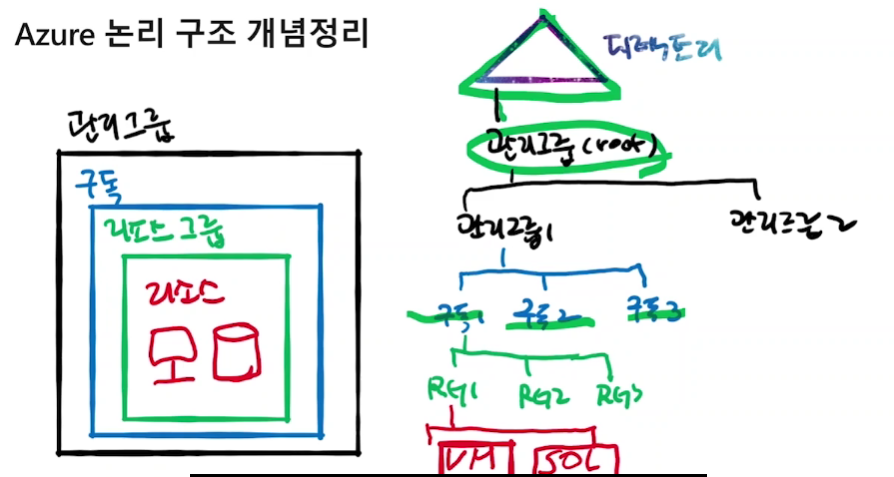 Azure 논리 구조 개념정리
관리그룹
구독
리소스그룹
리소스
디렉토리
관리그룹(root)
관리그룹1
관리그룹2
구독1 구독2 구독3
RG1 RG2 RG3
VM SQL